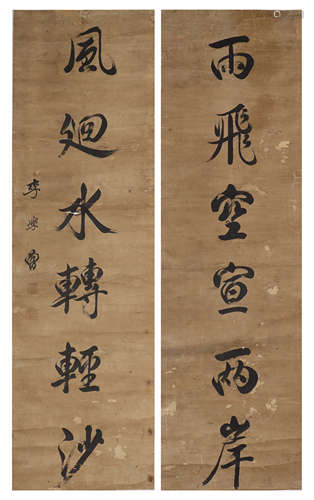 雨飛空宣兩岸
風廻水轉輕沙